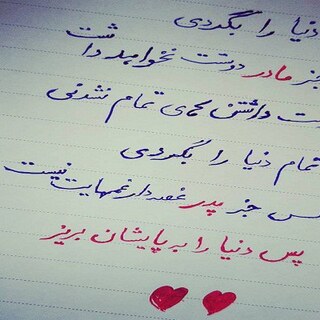 دنیا را بگردی
جز مادر دوستت نخواهد داشت
داشتن همه‌ی تمام نشدنی
تمام دنیا را بگردی
کس جز پدر غصه‌دار غمهایت نیست
پس دنیا را به پایشان بریز